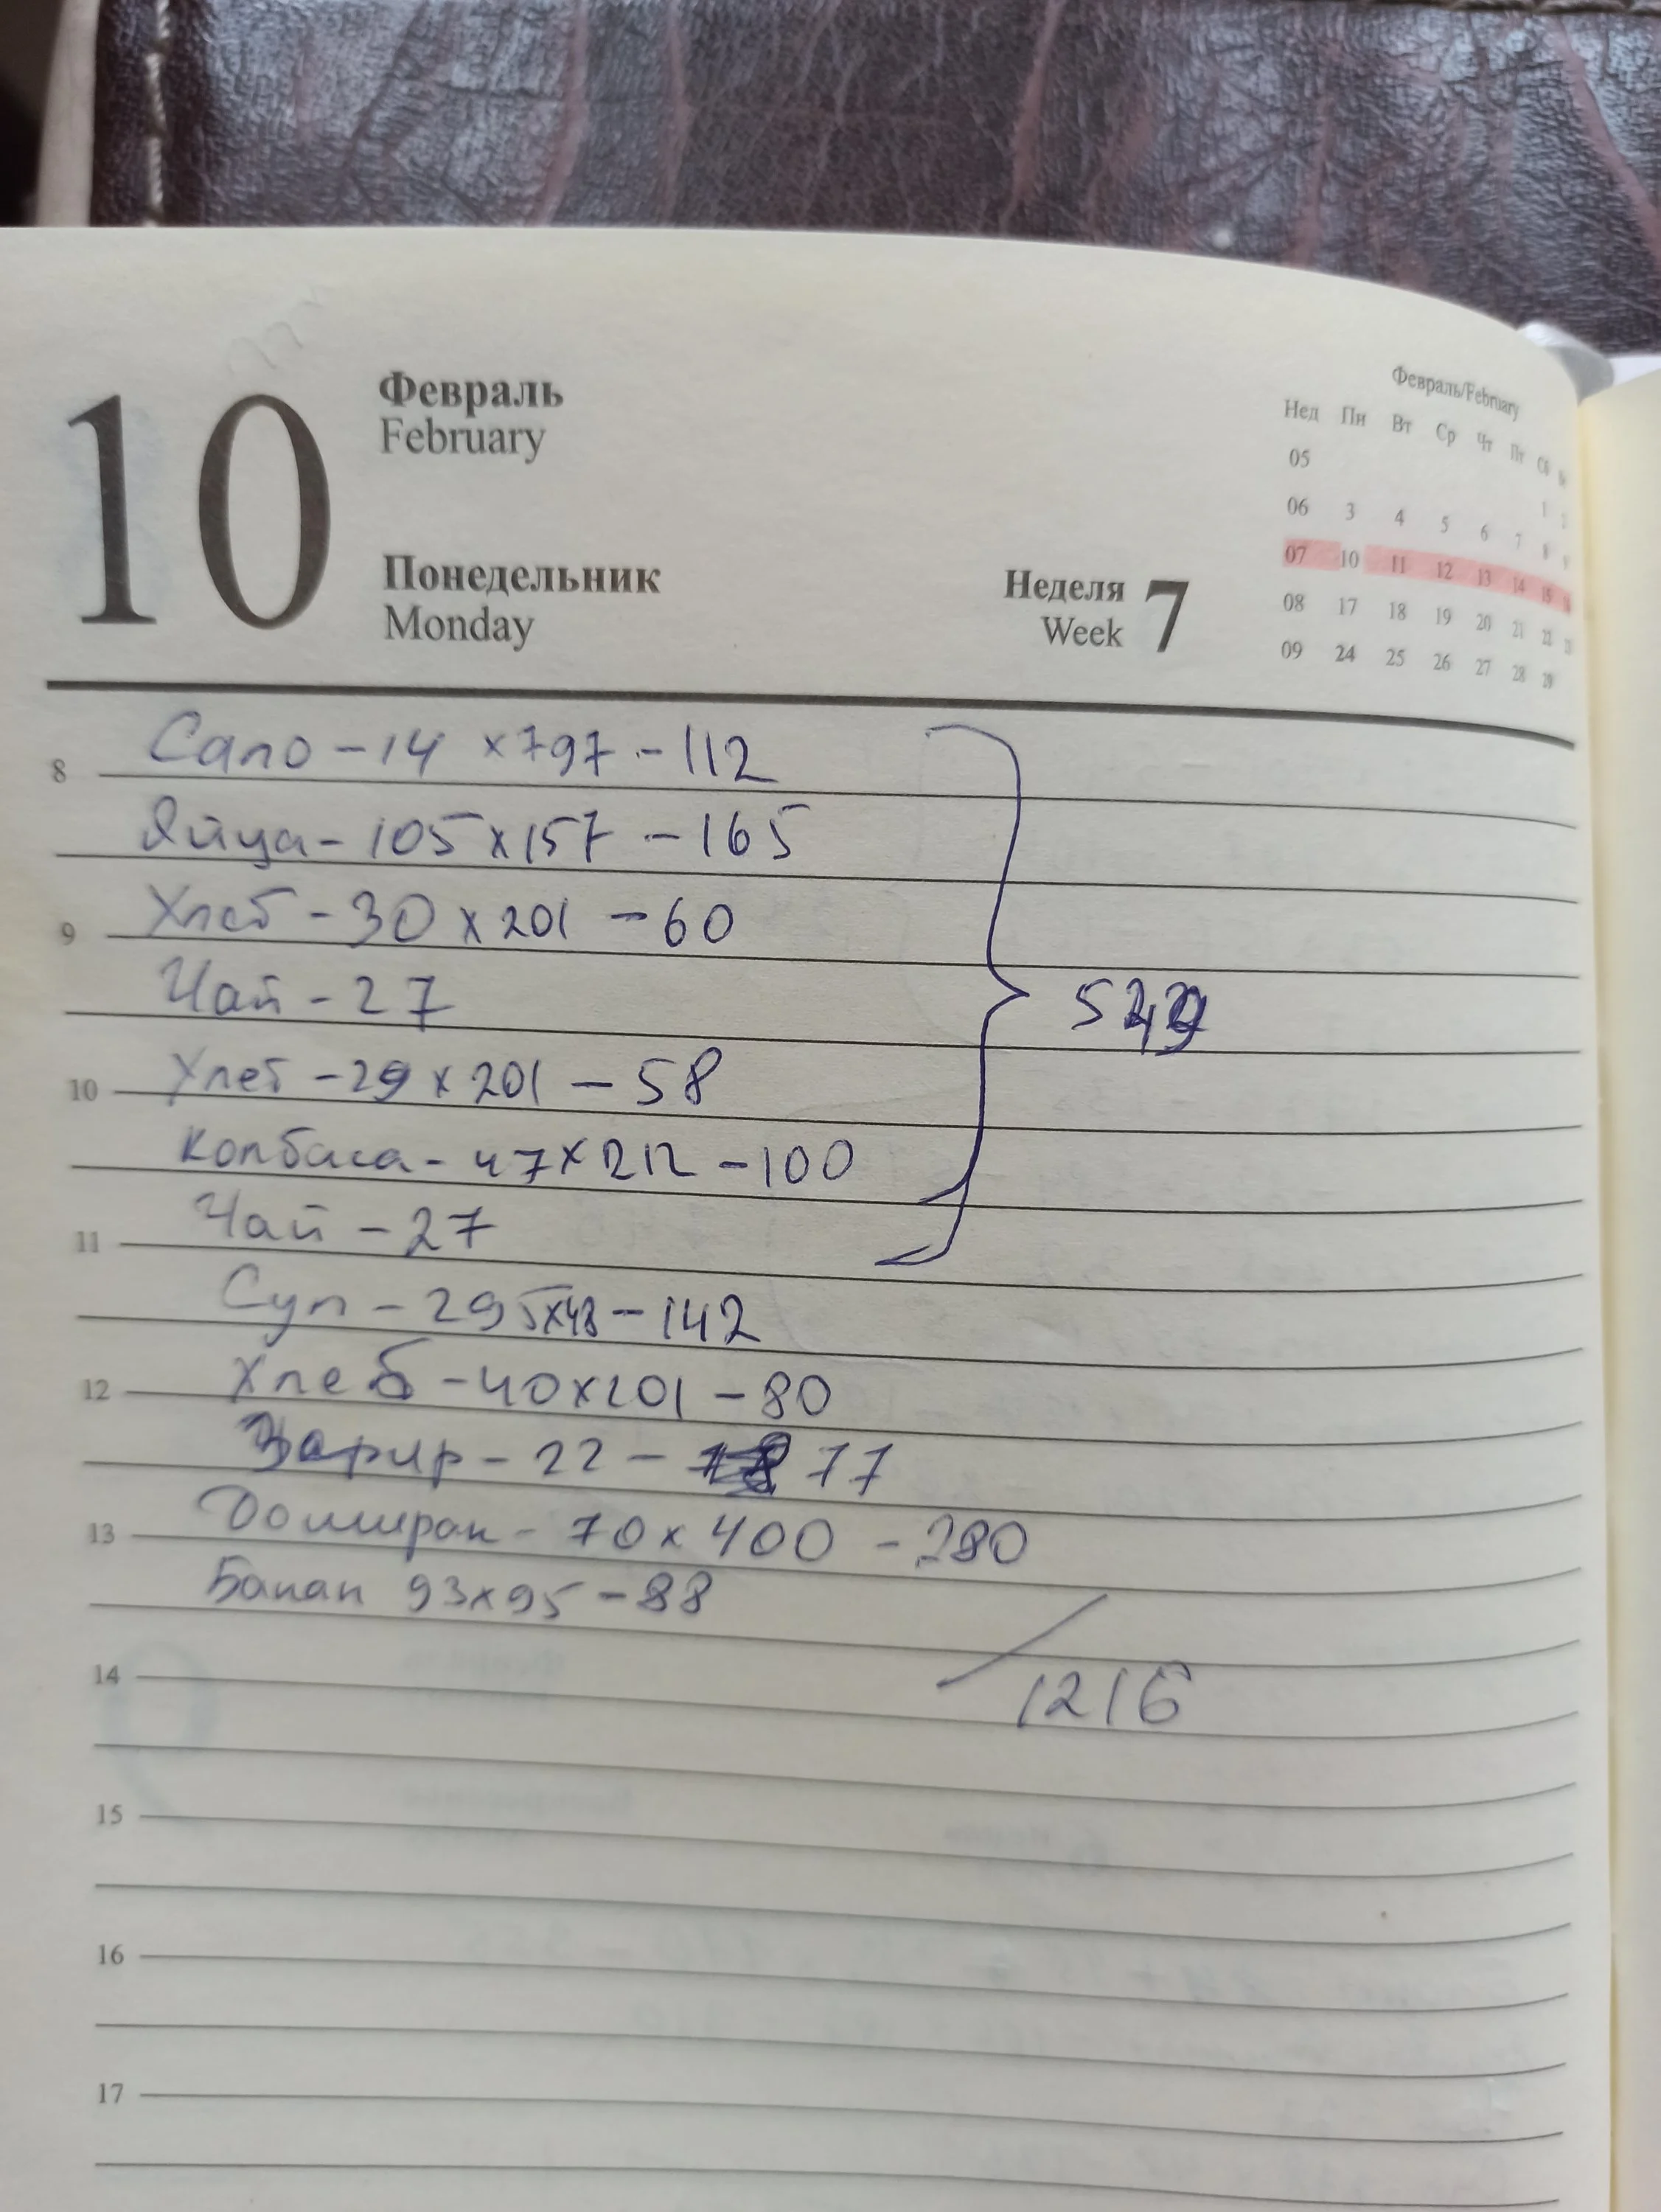 10
Февраль
February
Понедельник
Monday
Неделя
Week 7
Февраль/February
Нед Пн Вт Ср Чт Пт Сб
05 1 2
06 3 4 5 6 7 8 9
07 10 11 12 13 14 15 16
08 17 18 19 20 21 22 23
09 24 25 26 27 28 29
Сало - 14 x 797 - 112
8
Яйца - 105 x 157 - 165
Хлеб - 30 x 201 - 60
9
Чай - 27
Хлеб - 29 x 201 - 58
10
Колбаса - 47 x 212 - 100
Чай - 27
11
Суп - 295 x 48 - 142
Хлеб - 40 x 201 - 80
12
- 22 - 77
- 70 x 400 - 280
13
Банан 93 x 95 - 88
14
1216
15
16
17